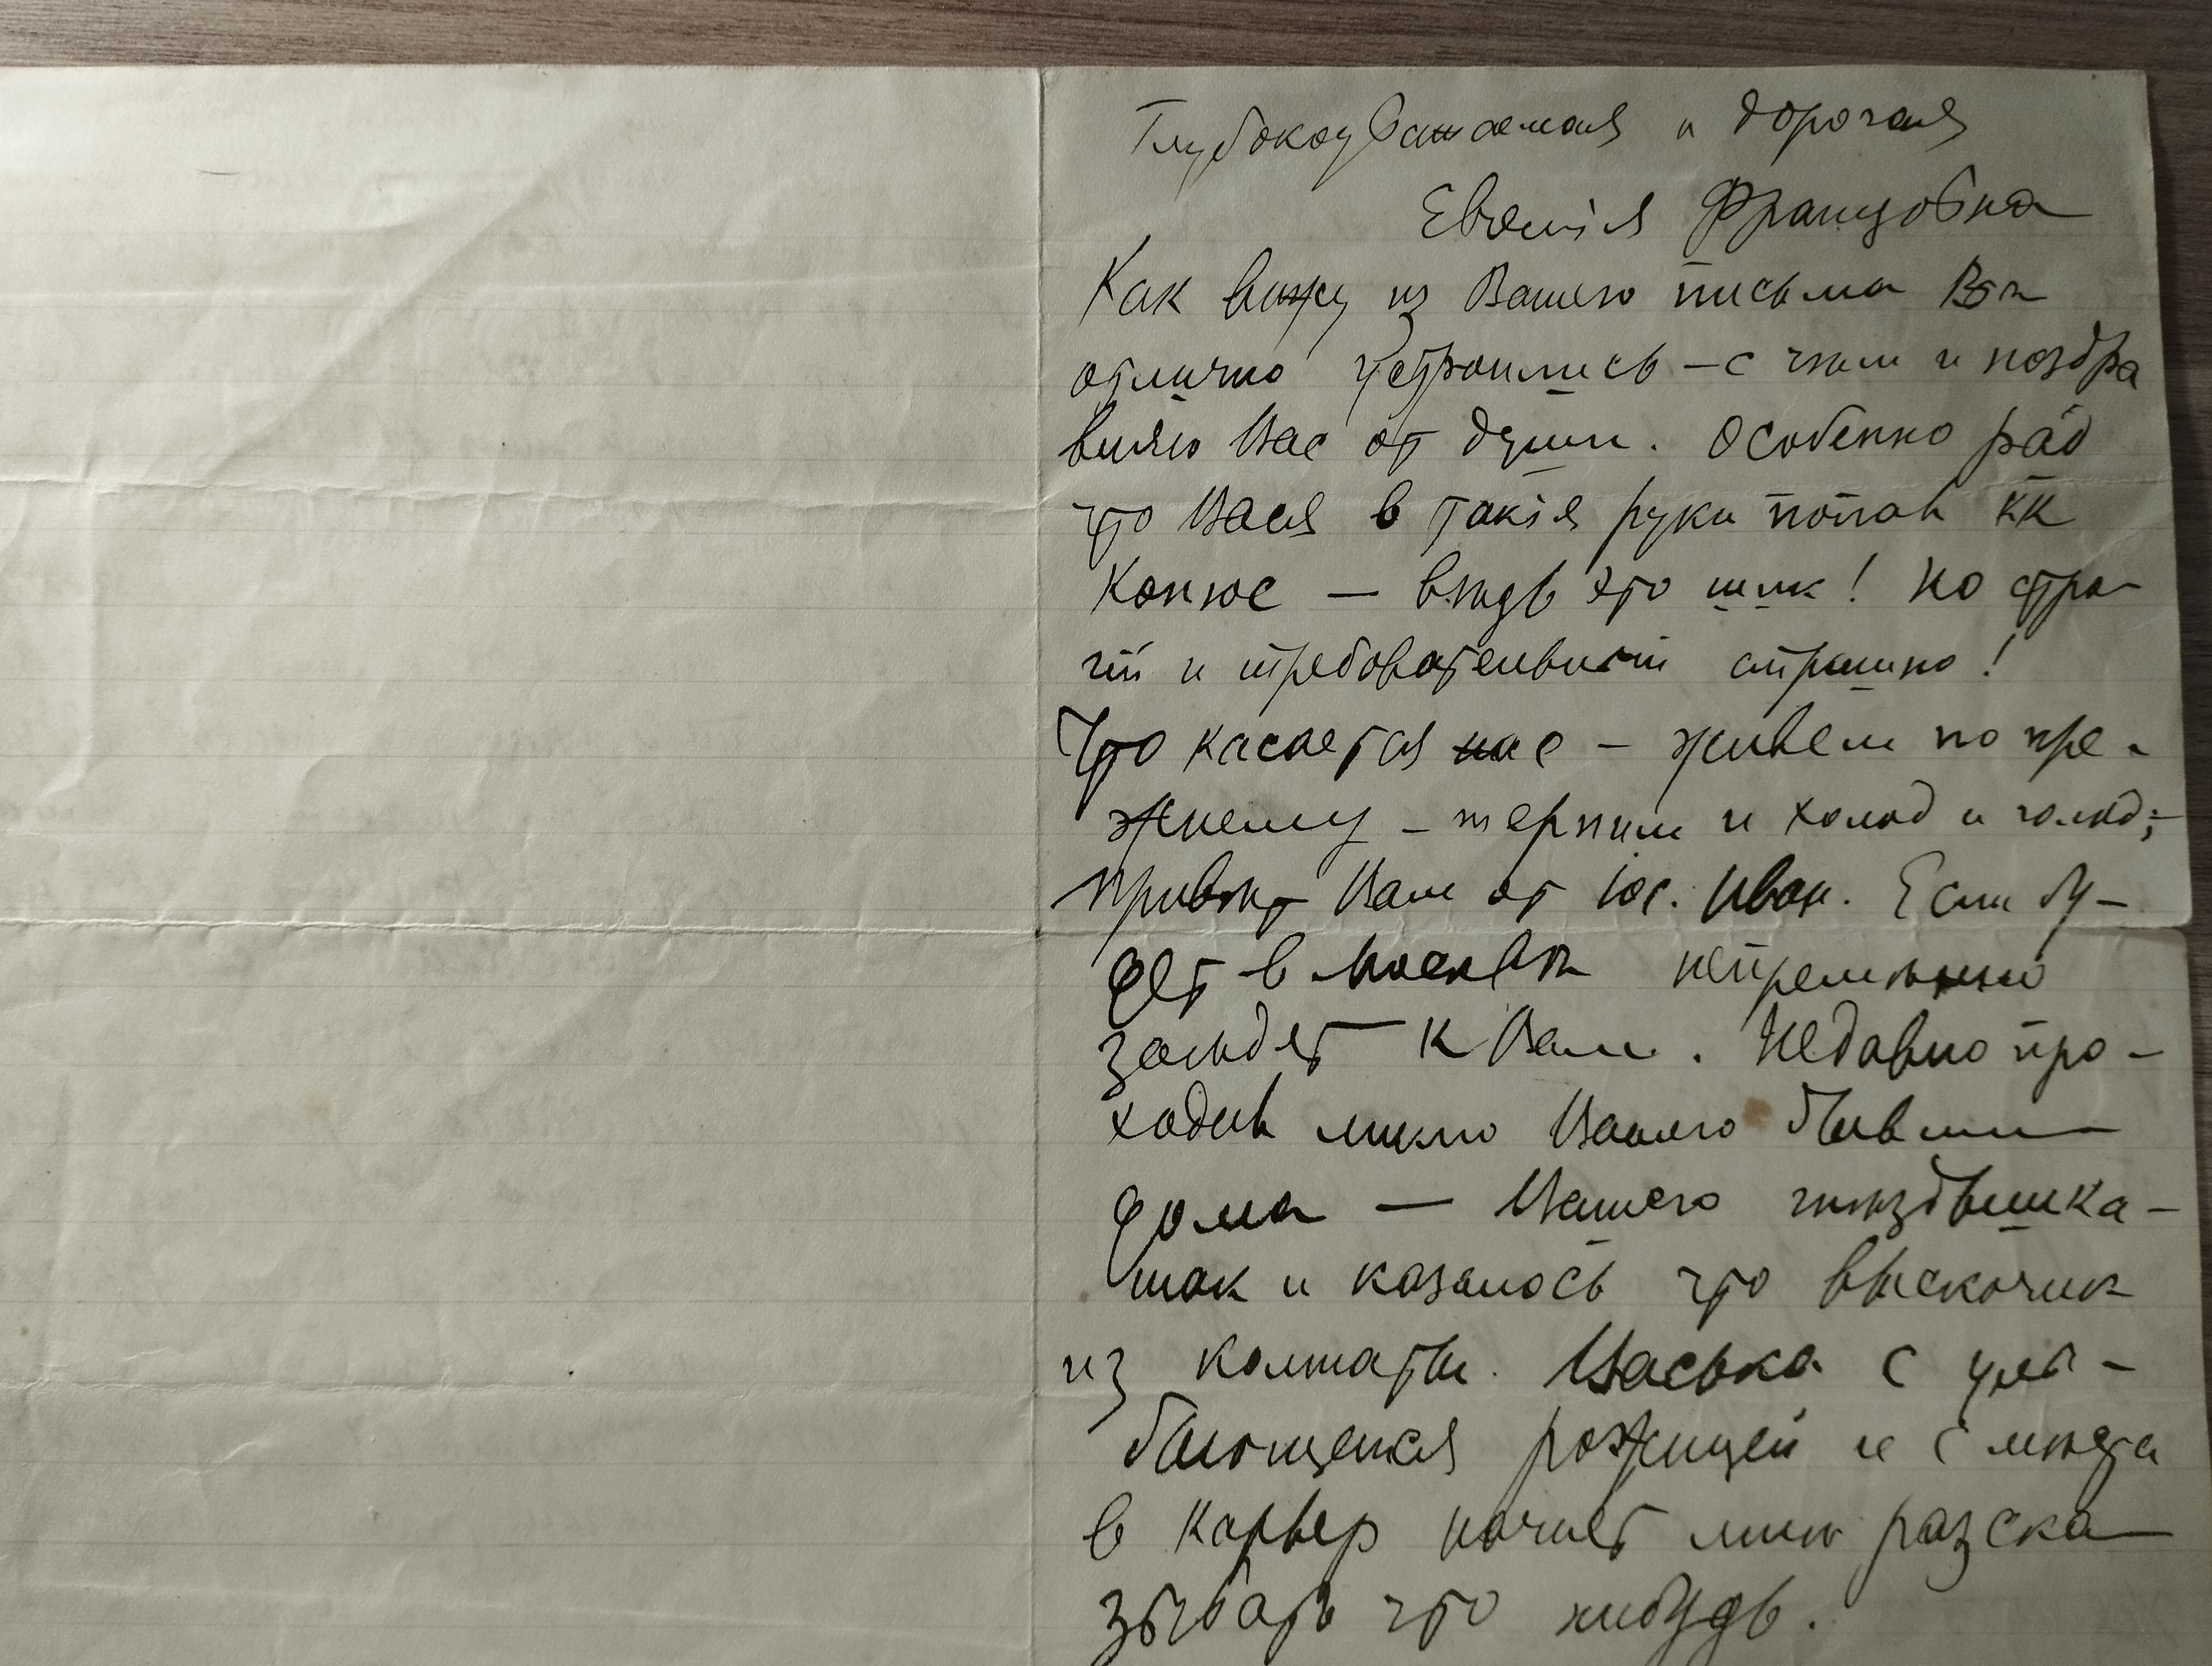 Глубокоуважаемая и дорогая
Евгенія Францовна
Как вижу из Вашего письма Вы
отлично устроились – с чѣм и поздра
вляю Вас от души. Особенно рад
что Вася в такія руки попал кк
Конюс — вѣдь это шик! Но стро-
гій и требовательный страшно!
Что касается нас – живем по пре-
жнему – терпим и холод и голод;
привѣт Вам от Юс. Иван. Если бу-
дет в Москвѣ непремѣнно
зайдет к Вам. Недавно про-
ходил мимо Вашего бывш
дома — Вашего гнѣздышка –
так и казалось что выскочит
из комнаты Васька с улы-
бающейся рожицей и с мѣста
в карьер начнет мнѣ разска
зывать что нибудь.